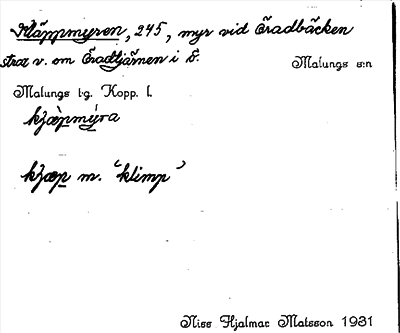 Kläppmyren, 245, myr vid Öradbäcken
strax v. om Öradtjärnen i Ö.
Malungs s:n
Malungs t-g. Kopp. l.
kʒæ̀pmýra
kʒæp m. "klimp"
Niss Hjalmar Matsson 1931